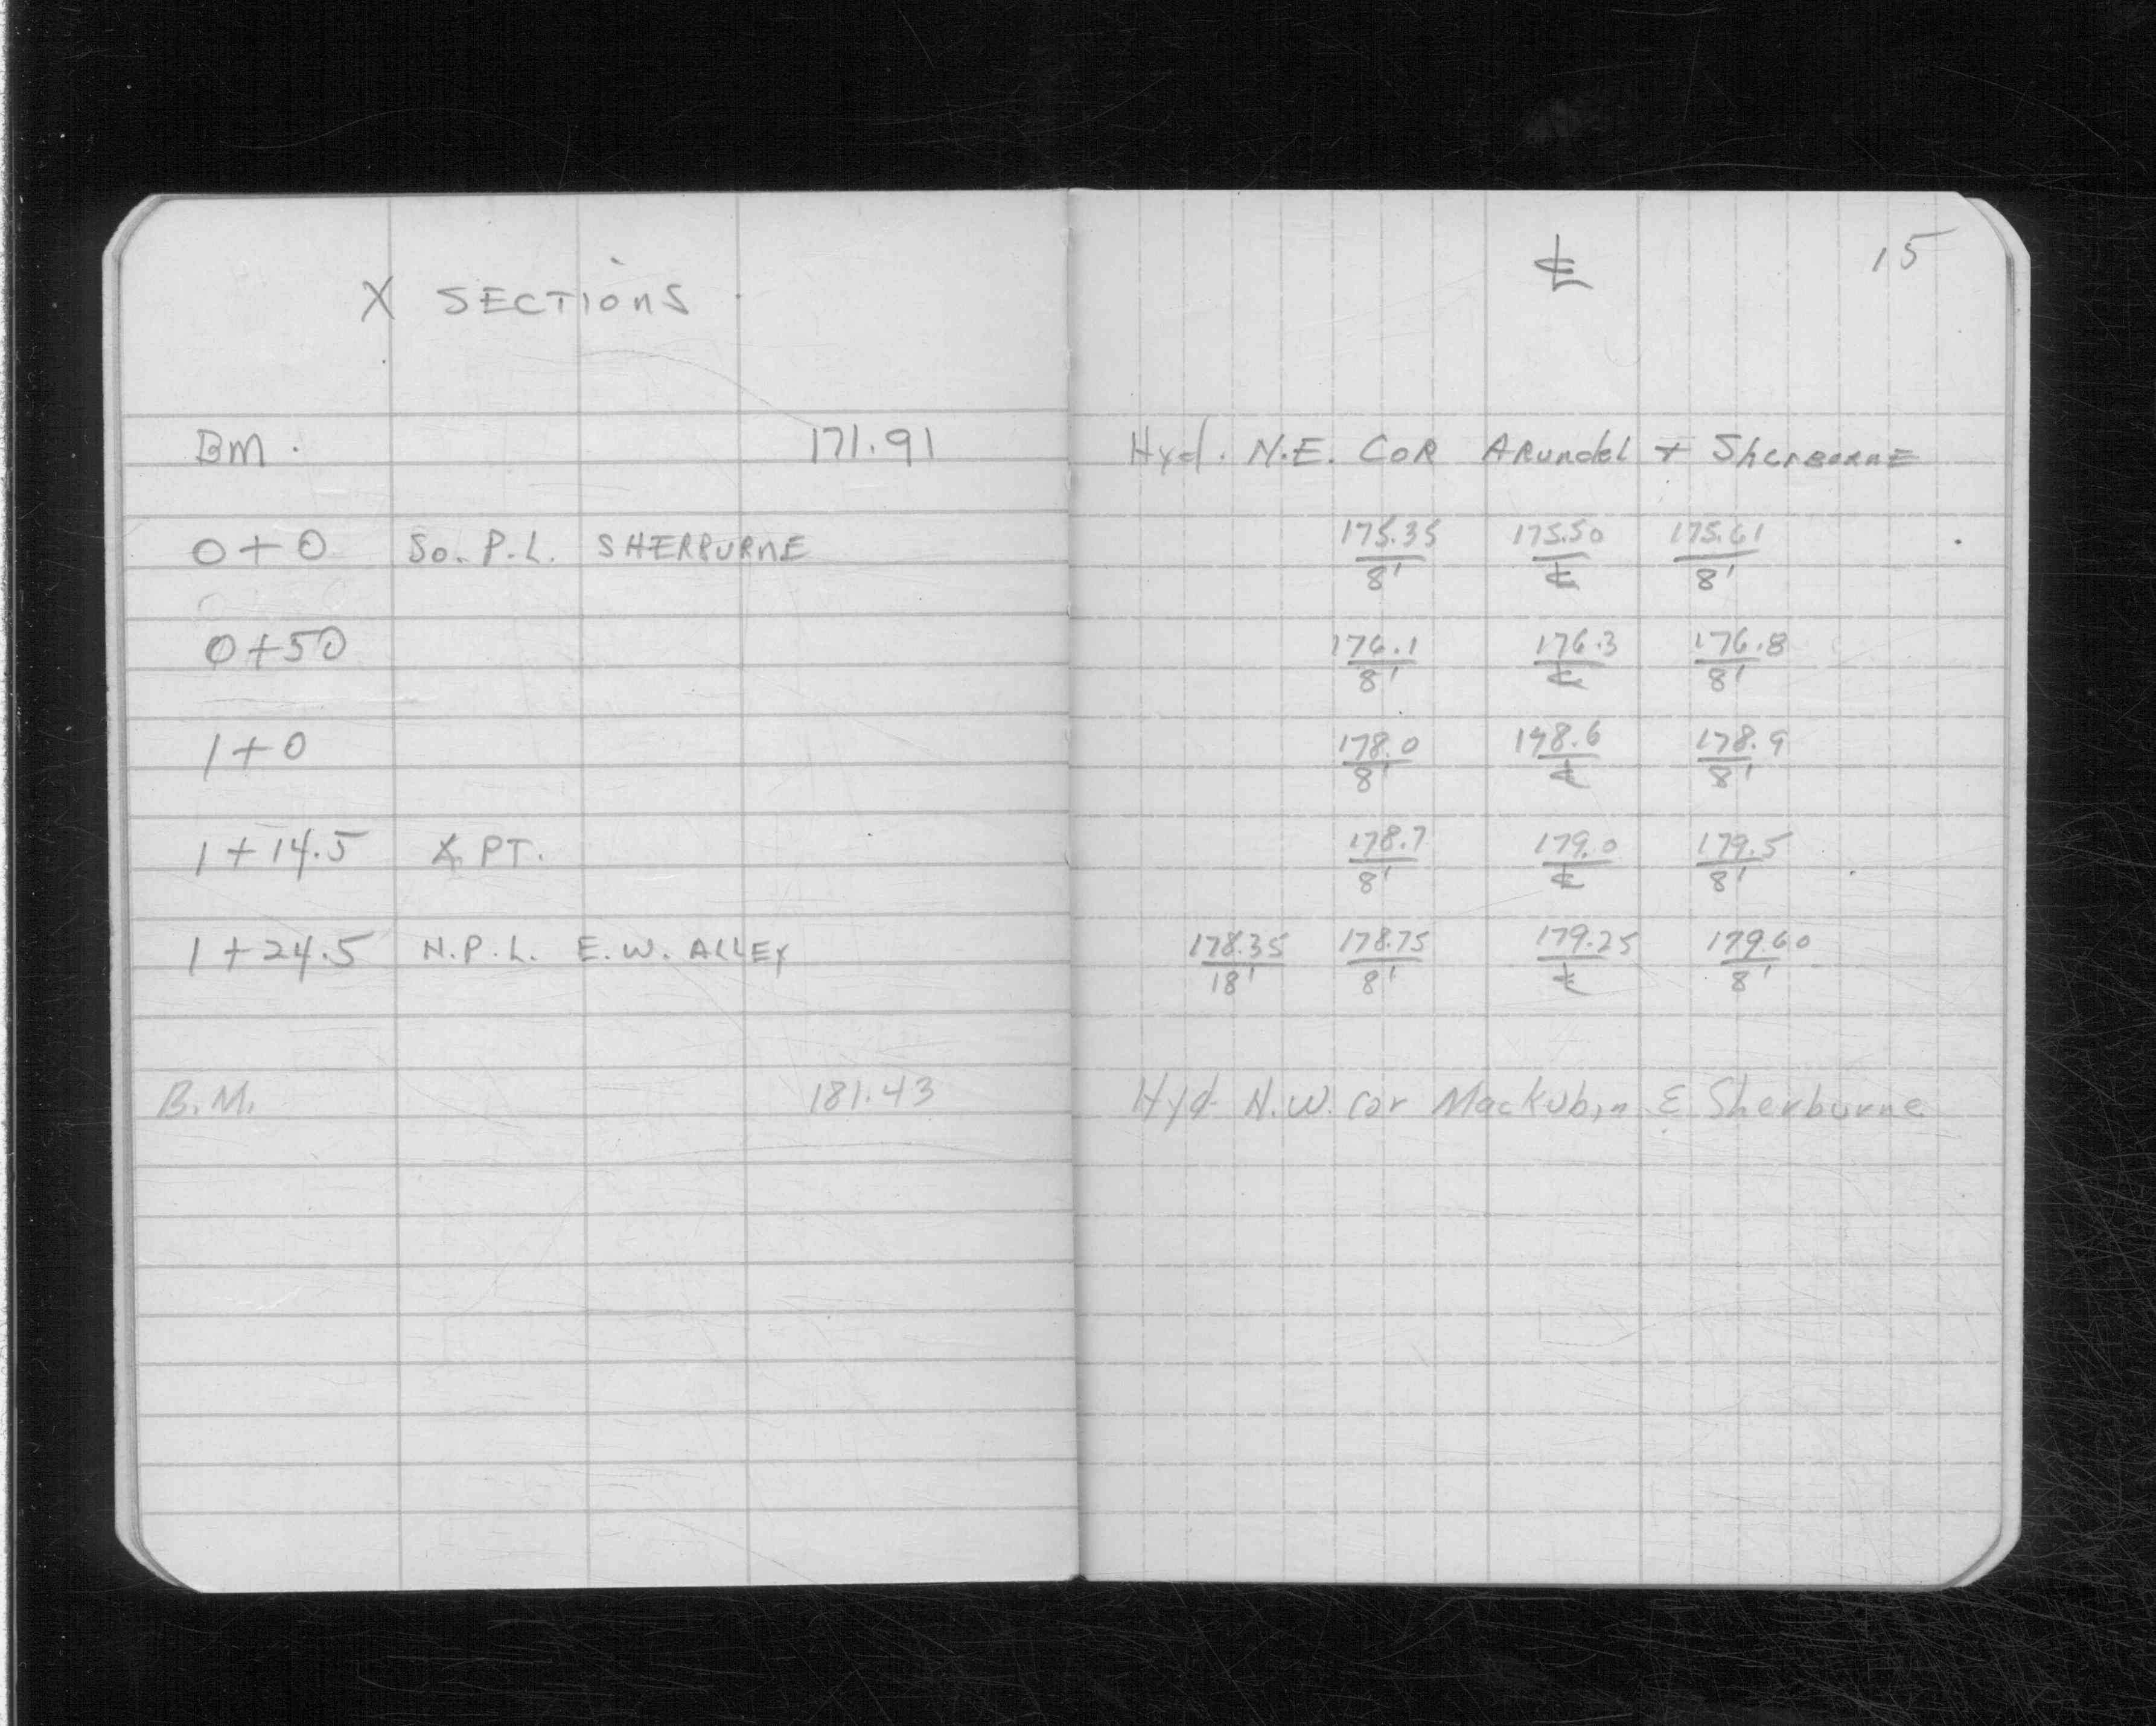 X SECTIONS
℄ 15
BM. 171.91 Hyd. N.E. COR ARundel + SherBurnE
0+0 So. P.L. SHERBURNE 175.35/8' 175.50/℄ 175.61/8'
0+50 176.1/8' 176.3/℄ 176.8/8'
1+0 178.0/8' 178.6/℄ 178.9/8'
1+14.5 X PT. 178.7/8' 179.0/℄ 179.5/8'
1+24.5 N.P.L. E.W. ALLEY 178.35/18' 178.75/8' 179.25/℄ 179.60/8'
B.M. 181.43 Hyd N.W. cor Mackubin & Sherburne